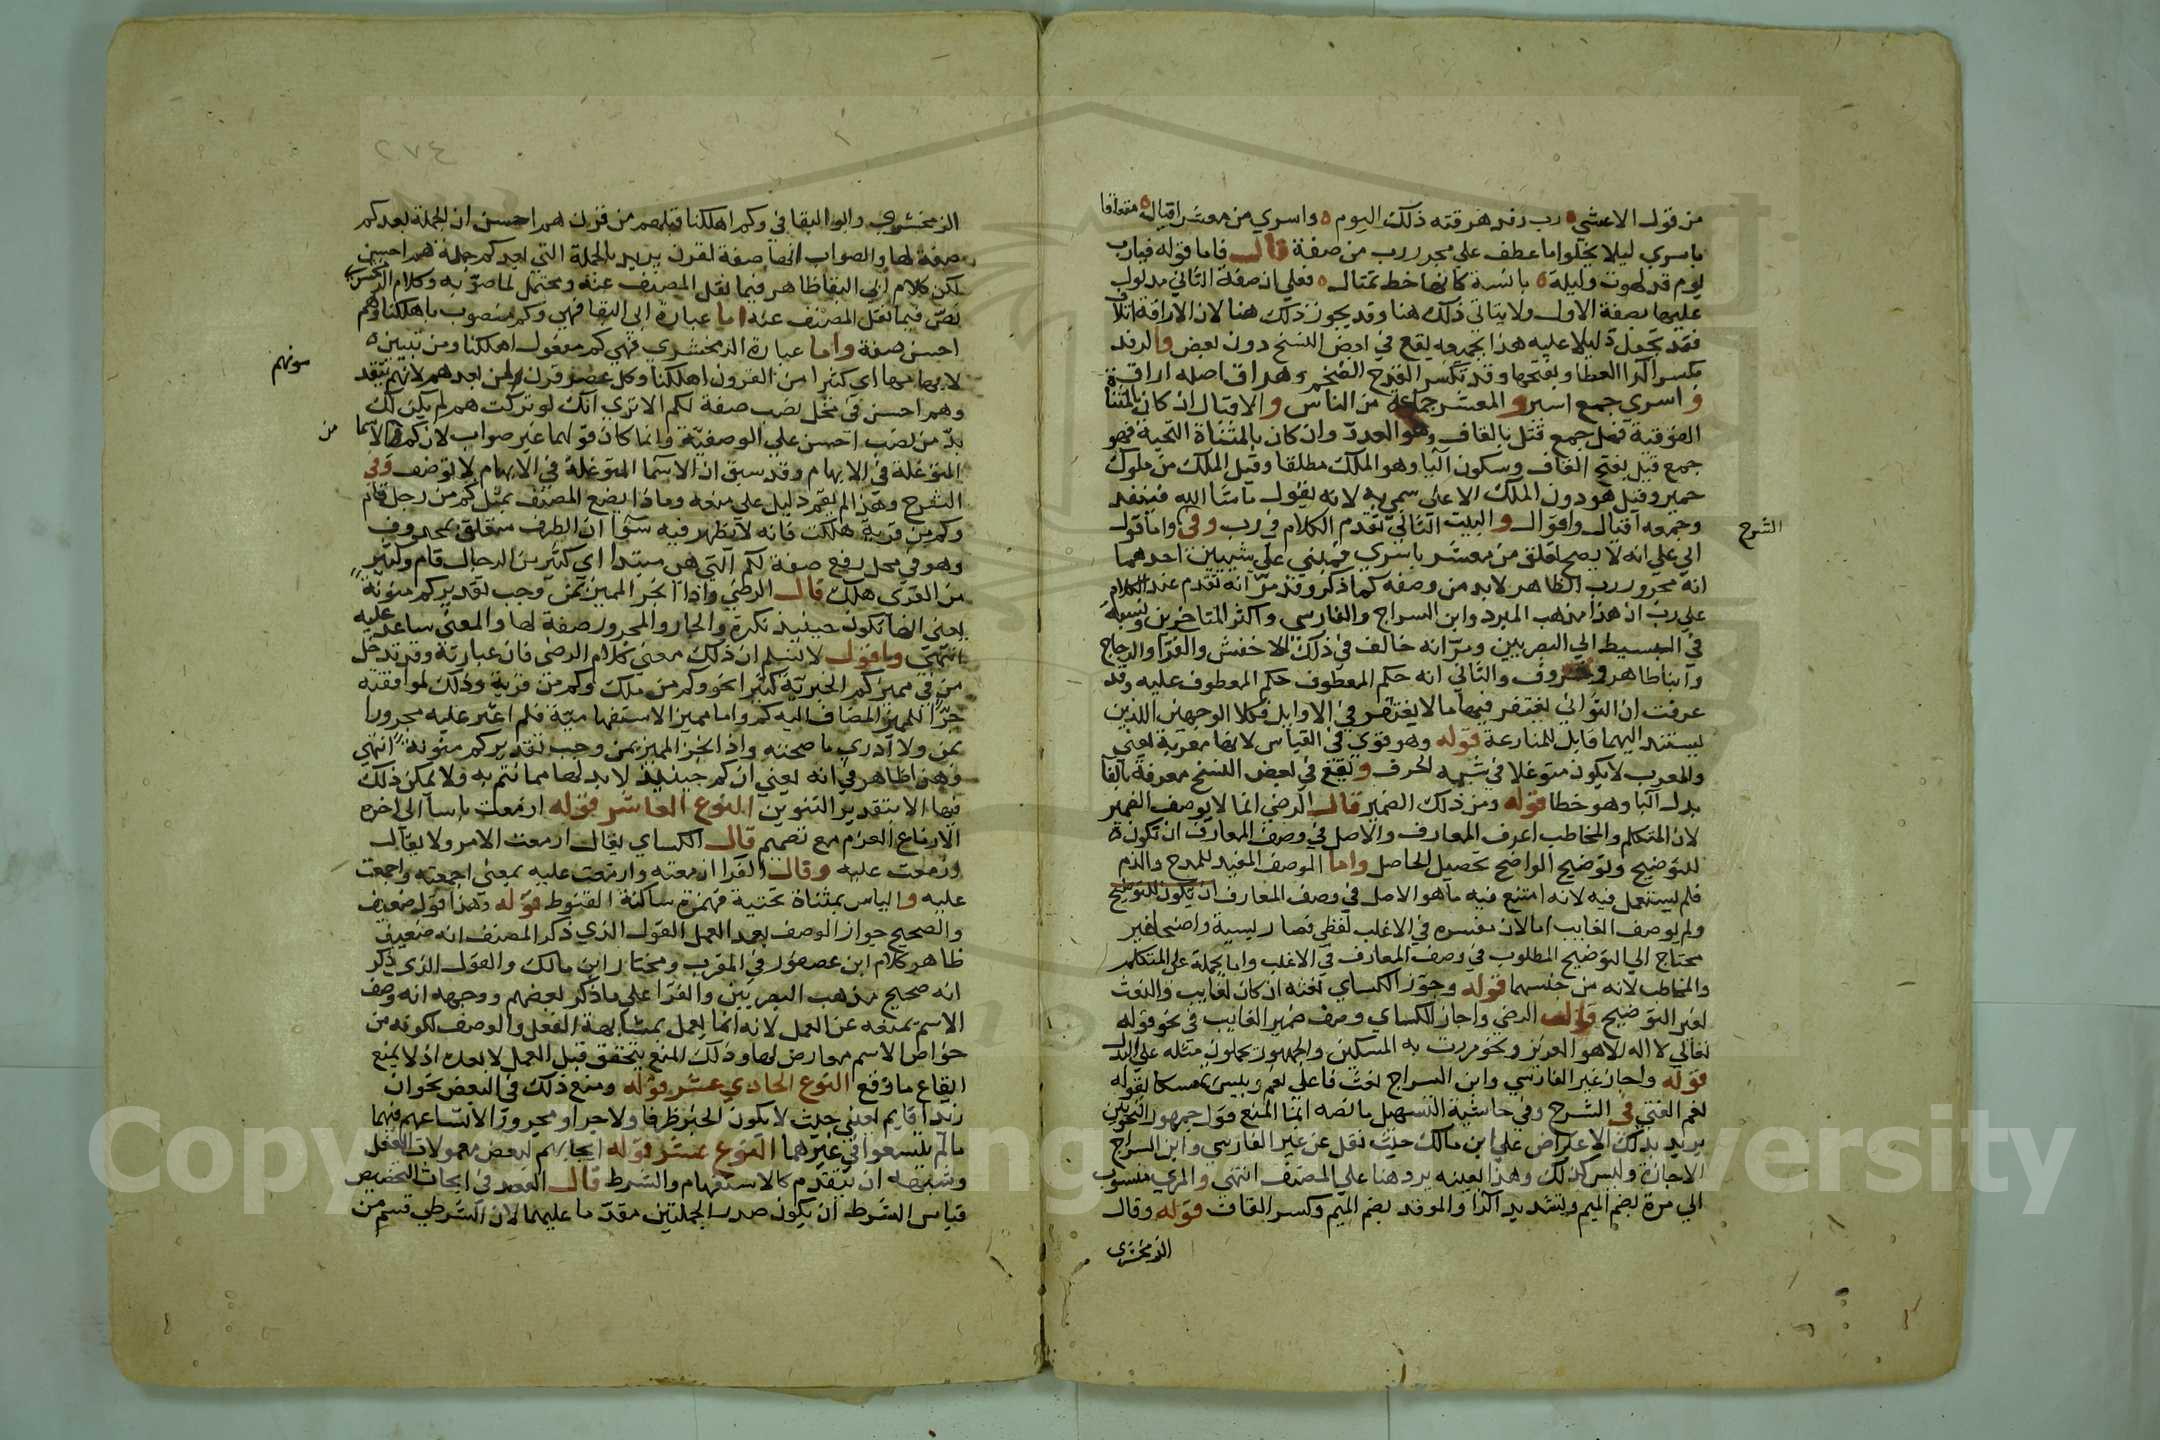 من قول الاعشي رب رفد هرقته ذلك اليوم واسري من معشر اقيال متعلقا
باسري ليلا يخلوا ما عطف علي مجرور رب من صفة قال فاما قوله فيارب
يوم قد لهوت وليلة بآنسة كانها خط تمثال فعلي ان صفة الثاني مدلول
عليها بصفة الاول ولا يتاتي ذلك هنا وقد يجوز ذلك هنا لان الاراقة اتلاف
فقد تجعل دليلا عليه هذا بجمعه يقع في بعض النسخ دون بعض والرفد
بكسر الرا العطا وبفتحها وقد تكسر القدح الضخم وهراق اصله اراق
واسري جمع اسير والمعشر جماعة من الناس والاقتال ان كان بالمثناة
الفوقية فهل جمع قتل بالقاف وهو العدو وان كان بالمثناة التحتية فهو
جمع قيل بفتح القاف وسكون اليا وهو الملك مطلقا وقيل الملك من ملوك
حمير وقيل هو دون الملك الاعلي سمي به لانه يقول ما شا الله فينفذ
وجمعه اقيال واقوال والبيت الثاني تقدم الكلام في رب وفي واما قول
الشرح
ابي علي انه لا يصح تعلق من معشر باسري فمبني علي شيئين احدهما
انه مجرور رب الظاهر لابد من وصفه كما ذكر وقد مر انه تقدم عند الكلام
علي رب ان هذا مذهب المبرد وابن السراج والفارسي واكثر المتاخرين ونسبه
في البسيط الي البصريين ومر انه خالف في ذلك الاخفش والفرا والزجاج
وابنا طاهر وخروف والثاني انه حكم المعطوف حكم المعطوف عليه وقد
عرفت ان الثواني يغتفر فيها ما لا يغتفر في الاوايل فكلا الوجهين اللذين
يستند اليهما قابل للمنازعة قوله وهو قوي في القياس لانها معربة يعني
والمعرب لا يكون متوغلا في شبه الحرف ويقع في بعض النسخ معرفة بالفا
بدل البا وهو خطا قوله ومن ذلك الضمير قال الرضي انما لا يوصف الضمير
لان المتكلم والمخاطب اعرف المعارف والاصل في وصف المعارف ان تكون
للتوضيح وتوضيح الواضح تحصيل الحاصل واما الوصف المفيد للمدح والذم
فلم يستعمل فيه لانه امتنع فيه ما هو الاصل في وصف المعارف ان يكون للتوضيح
ولم يوصف الغايب اما لان مفسره في الاغلب لفظي فصار بسببه واضحا غير
محتاج الي التوضيح المطلوب في وصف المعارف في الاغلب واما بحمله علي المتكلم
والمخاطب لانه من جنسهما قوله وجوز الكساي نعته ان كان لغايب والنعت
لغير التوضيح قال الرضي واجاز الكساي وصف ضمير الغايب في نحو قوله
تعالي لا اله الا هو العزيز ونحو مررت به المسكين والجمهور يحملون مثله علي البدل
قوله واجاز غير الفارسي وابن السراج نعت فاعلي نعم وبيس تمسكا بقوله
نعم الفتي في الشرح وفي حاشية التسهيل ما نصه ايضا المنع قول جمهور النحويين
يريد بذلك الاعتراض علي ابن مالك حيث نقل عن غير الفارسي وابن السراج
الاجازة وليس كذلك وهذا بعينه يرد هنا علي المصنف انتهي والمري منسوب
الي مرة بضم الميم وتشديد الرا والموقد بضم الميم وكسر القاف قوله وقال
الزمخشري
٢٧٤
الزمخشري وابو البقا في وكم اهلكنا قبلهم من قرن هم احسن ان الجملة بعد كم
صفة لها والصواب انها صفة لقرن يريد بالجملة التي بعد كم جملة هم احسن
لكن كلام ابي البقا ظاهر فيما نقل المصنف عنه ومحتمل لما صوبه وكلام الزمخشري
نص فيما نقل المصنف عنه اما عبارة ابي البقا فهي وكم منصوب باهلكنا وهم
احسن صفة واما عبارة الزمخشري فهي كم مفعول اهلكنا ومن تبيين
لابهامها اي كثيرا من القرون اهلكنا وكل عصر قرن لمن بعدهم لانهم يتقد
مونهم
وهم احسن في محل نصب صفة لكم الا تري انك لو تركت هم لم يكن لك
بد من نصب احسن علي الوصفية وانما كان قولهما غير صواب لان كم من الاسما
المتوغلة في الابهام وقد سبق ان الاسما المتوغلة في الابهام لا توصف وفي
الشرح وهذا لم يقم دليل علي منعه وماذا يصنع المصنف بمثل كم من رجل قام
وكم من قرية هلكت فانه لا يظهر فيه سوي ان الظرف متعلق بمحذوف
وهو في محل رفع صفة لكم التي هي مبتدا اي كثير من الرجال قام وكثير
من القري هلك قال الرضي واذا انجر المميز بمن وجب تقدير كم منونة
يعني انها تكون حينيذ نكرة والجار والمجرور صفة لها والمعني ساعد عليه
انتهي واقول لا نسلم ان ذلك معني كلام الرضي فان عبارته وقد تدخل
من في مميز كم الخبرية كثيرا نحو وكم من ملك وكم من قرية وذلك لموافقته
جرا للمميز المضاف اليه كم واما مميز الاستفهامية فلم اعثر عليه مجرورا
بمن ولا ادري ما صحته واذا انجر المميز بمن وجب تقدير كم منونة انتهي
وهذا ظاهر في انه يعني ان كم حينيذ لابد لها مما تتم به ولا يمكن ذلك
فيها الا بتقدير التنوين النوع العاشر قوله ازمعت ياسا الي اخره
الازماع العزم مع تصميم قال الكساي يقال ازمعت الامر ولا يقال
ازمعت عليه وقال الفرا ازمعته وازمعت عليه بمعني اجمعته واجمعت
عليه والياس بمثناة تحتية فهمزة ساكنة القنوط قوله وهذا قول ضعيف
والصحيح جواز الوصف بعد العمل القول الذي ذكر المصنف انه ضعيف
ظاهر كلام ابن عصفور في المقرب ومختار ابن مالك والقول الذي ذكر
انه صحيح مذهب البصريين والفرا علي ما ذكر بعضهم ووجهه انه وصف
الاسم يمنعه عن العمل لانه انما يعمل بمشابهة الفعل والوصف لكونه من
خواص الاسم معارض لها وذلك المنع يتحقق قبل العمل لا بعده اذ لا يمنع
ايقاع ما وقع النوع الحادي عشر قوله ومنع ذلك في البعض نحو ان
زيدا قايم يعني حيث لا يكون الخبر ظرفا ولا جرا ومجرورا لاتساعهم فيهما
ما لم يتسعوا في غيرهما النوع عشر قوله ايجابهم لبعض معمولات الفعل
وشبهه ان يتقدم كالاستفهام والشرط قال العضد في ابحاث التخصيص
قياس الشرط ان يكون صدر الجملتين مقدما عليهما لان الشرطي قسم من